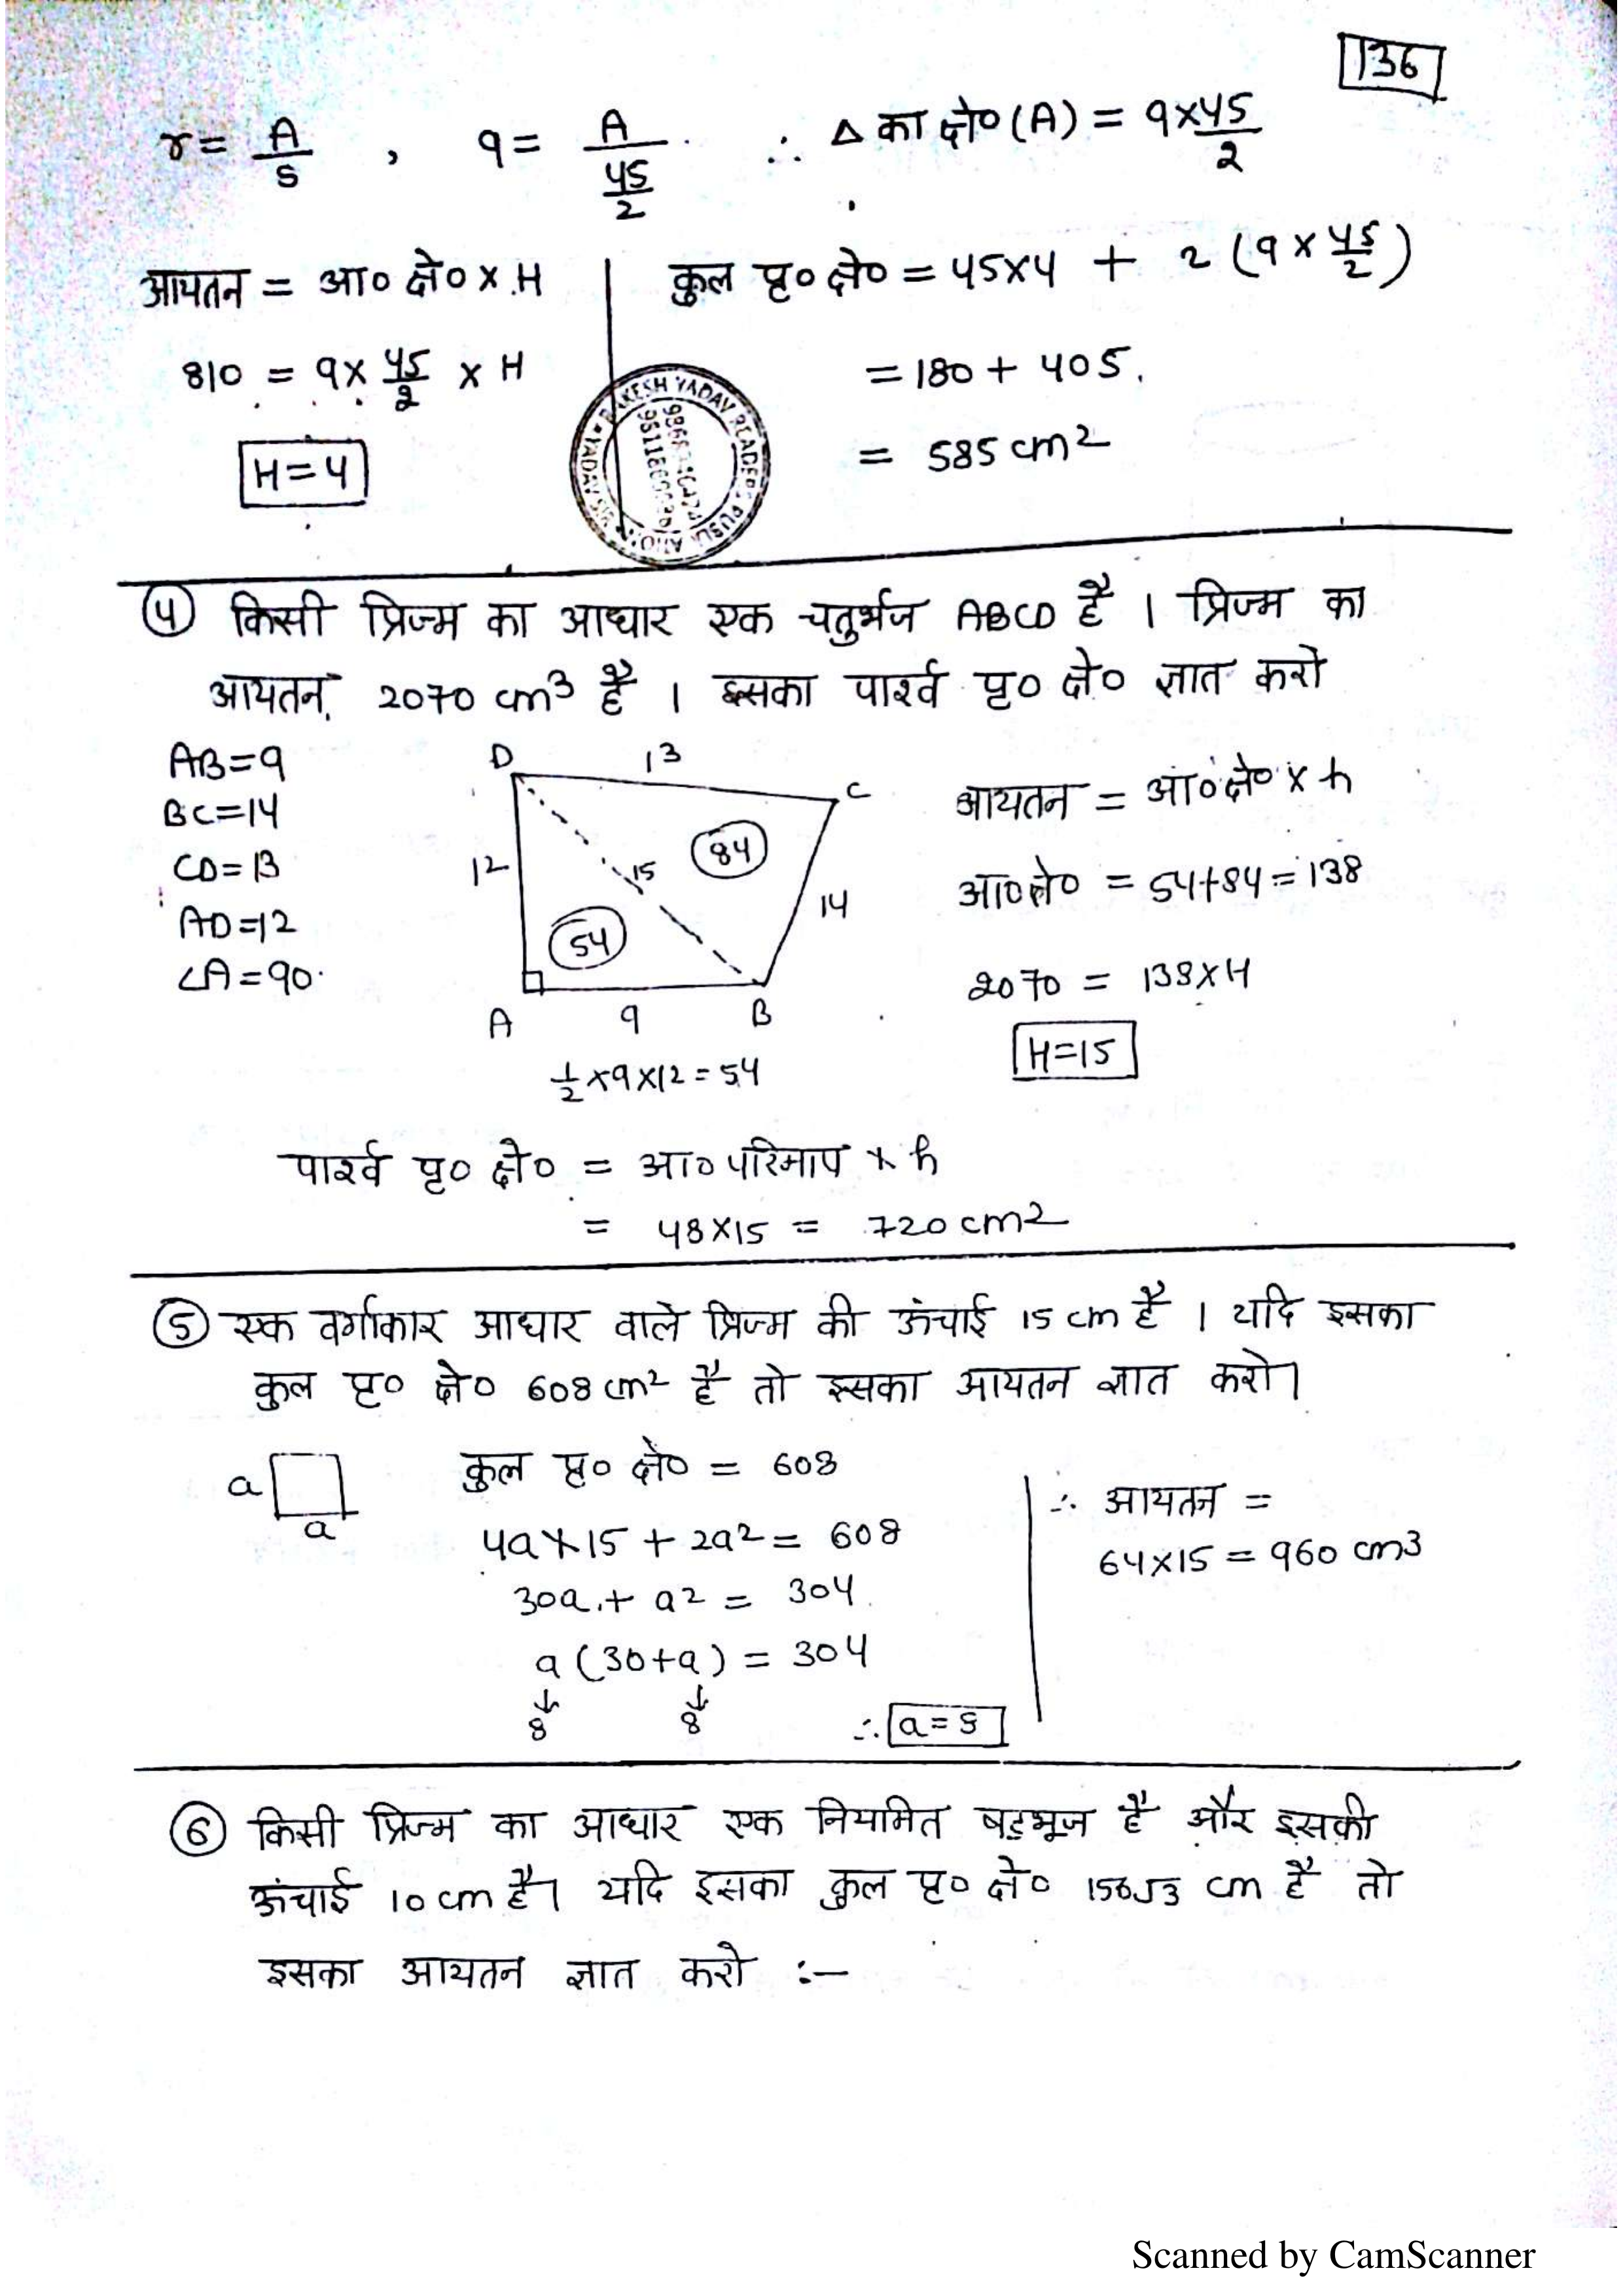 136
r = A/s , 9 = A/(45/2) ∴ Δ का क्षे० (A) = 9×45/2
आयतन = आ० क्षे० × H
810 = 9 × 45/2 × H
H=4
कुल पृ० क्षे० = 45×4 + 2 (9 × 45/2)
= 180 + 405
= 585 cm2
④ किसी प्रिज्म का आधार एक चतुर्भुज ABCD है । प्रिज्म का
आयतन 2070 cm3 है । इसका पार्श्व पृ० क्षे० ज्ञात करो
AB=9
BC=14
CD=13
AD=12
∠A=90
D 13 C
12 15 84 14
54
A 9 B
1/2 ×9×12 = 54
आयतन = आ० क्षे० × h
आ० क्षे० = 54+84 = 138
2070 = 138×H
H=15
पार्श्व पृ० क्षे० = आ० परिमाप × h
= 48×15 = 720 cm2
⑤ एक वर्गाकार आधार वाले प्रिज्म की ऊंचाई 15 cm है । यदि इसका
कुल पृ० क्षे० 608 cm2 है तो इसका आयतन ज्ञात करो।
a
a
कुल पृ० क्षे० = 608
4a×15 + 2a2 = 608
30a + a2 = 304
a (30+a) = 304
↓ ↓
8 8 ∴ a=8
∴ आयतन =
64×15 = 960 cm3
⑥ किसी प्रिज्म का आधार एक नियामित षड्भूज है और इसकी
ऊंचाई 10 cm है। यदि इसका कुल पृ० क्षे० 156√3 cm है तो
इसका आयतन ज्ञात करो :—
Scanned by CamScanner